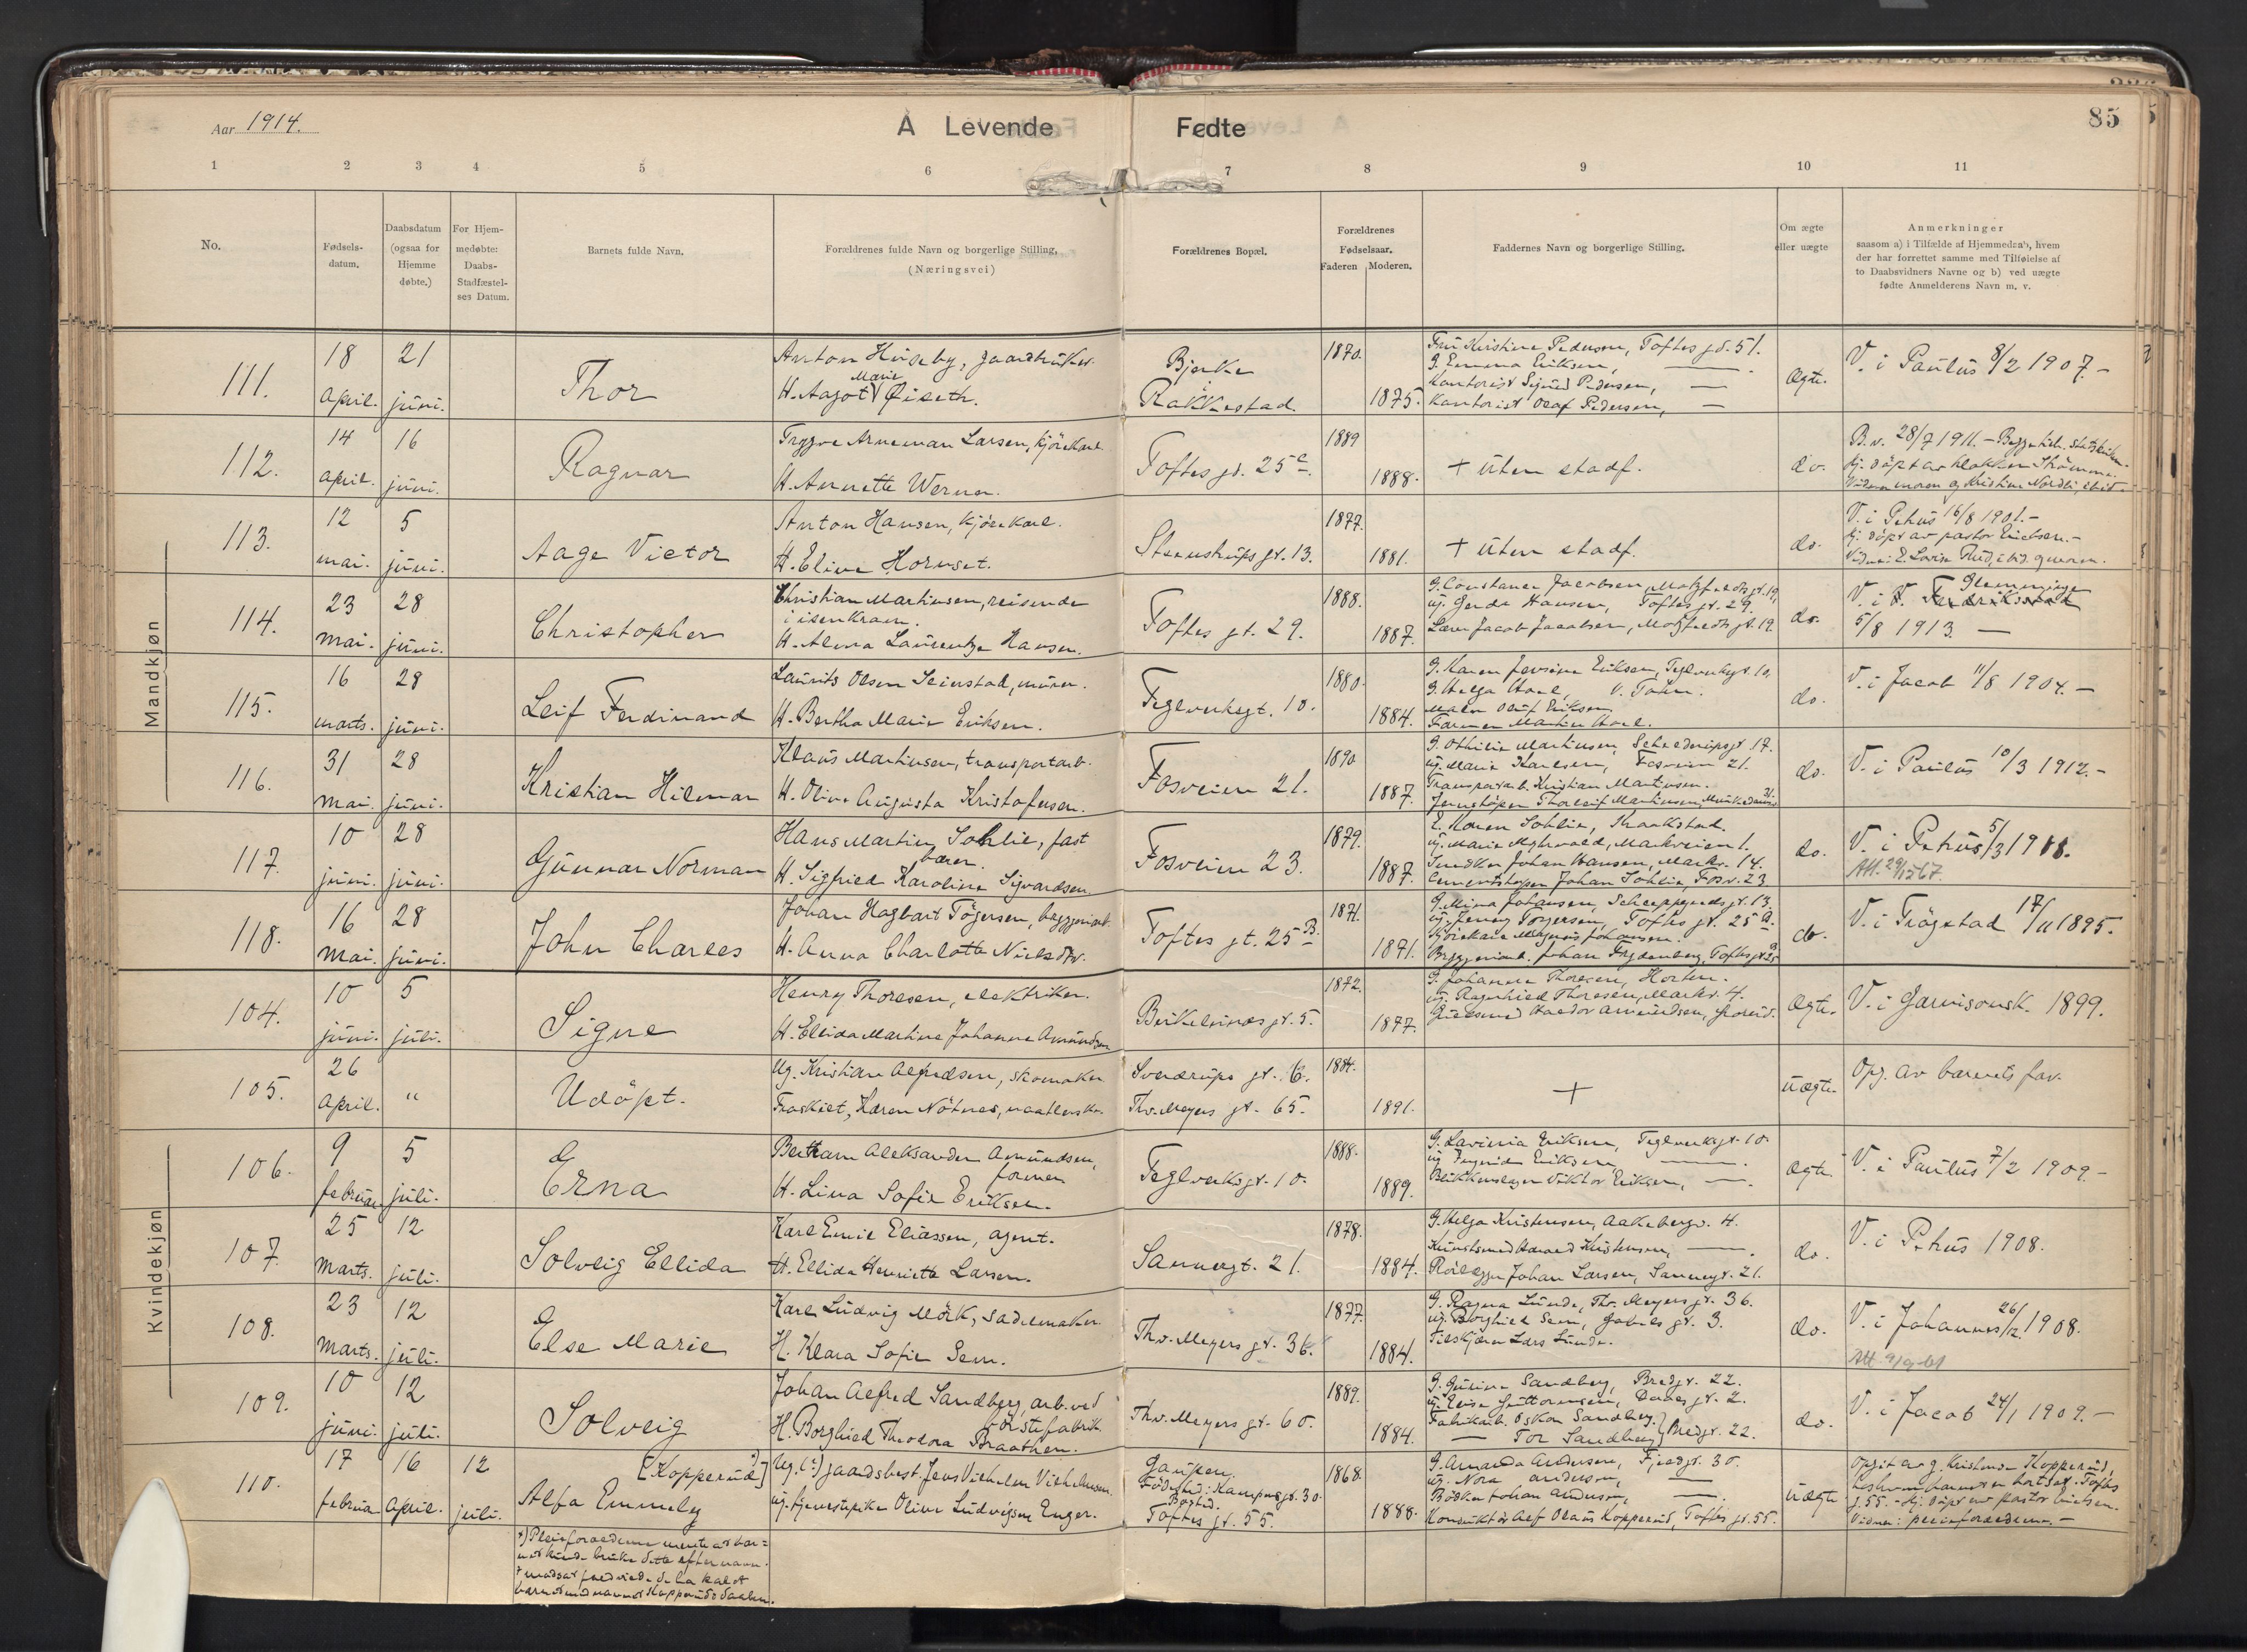 85
Aar 1914.
A Levende Fødte
1 2 3 4 5 6 7 8 9 10 11
No.
Fødsels-
datum.
Daabsdatum
(ogsaa for
Hjemme
døbte.)
For Hjem-
medøbte:
Daabs-
Stadfæstel-
ses Datum.
Barnets fulde Navn.
Forældrenes fulde Navn og borgerlige Stilling,
(Næringsvei)
Forældrenes Bopæl.
Forældrenes
Fødselsaar.
Faderen Moderen.
Faddernes Navn og borgerlige Stilling.
Om ægte
eller uægte
Anmerkninger
saasom a) i Tilfælde af Hjemmedaab, hvem
der har forrettet samme med Tilføielse af
to Daabsvidners Navne og b) ved uægte
fødte Anmelderens Navn m. v.
Mandkjøn
111.
18 april.
21 juni.
Thor
Anton Huseby, gaardbruker.
H. Aagot Marie Øiseth.
Bjerke
Rakkestad.
1870.
1875.
Fru Kristine Pedersen, Toftes gt. 51.
G. Emma Eriksen, —
Kontorist Sigurd Pedersen, —
Kontorist Olaf Pedersen, —
Ægte.
V. i Paulus 8/2 1907.-
112.
14 april.
16 juni.
Ragnar
Trygve Arneman Larsen, kjørekarl
H. Annette Werner.
Toftes gt. 25 c.
1889
1888.
+ uten stadf.
do.
B. v. 28/7 1911. - Begge tilh. statskirken.
Hj. døpt av klokker Strømme.
Vidner moren og Kristine Nordli, ibid.
113.
12 mai.
5 juni.
Aage Victor
Anton Hansen, kjørekarl.
H. Eline Hornset.
Steenstrups gt. 13.
1877.
1881.
+ uten stadf.
do.
V. i Petrus 16/8 1901.-
Hj. døpt av pastor Erichsen.-
Vidner: E. Lovise Ruud, ibid. og moren.
114.
23 mai.
28 juni.
Christopher
Christian Martinsen, reisende
i isenkram.
H. Alma Laurentze Hansen.
Toftes gt. 29.
1888.
1887.
G. Constance Jacobsen, Motzfeldts gt. 19,
ug. Gerda Hansen, Toftes gt. 29.
Lærer Jacob Jacobsen, Motzfeldts gt. 19.
do.
V. i Glemminge
5/8 1913. —
115.
16 marts.
28 juni.
Leif Ferdinand
Laurits Olsen Seierstad, murer.
H. Bertha Marie Eriksen.
Teglverksgt. 10.
1880.
1884.
G. Karen Jensine Eriksen, Teglverksgt. 10,
G. Helga Hoel, V. Toten.
Maler Oluf Eriksen
Former Martin Hoel.
do.
V. i Jacob 11/8 1904. -
116.
31 mai.
28 juni.
Kristian Hilmar
Klaus Martinsen, transportarb.
H. Olive Augusta Kristofersen.
Fosveien 21.
1890
1887.
G. Othilie Martinsen, Schleppegrellsgt. 17.
ug. Marie Karlsen, Fosveien 21.
Transportarb. Kristian Martinsen.
Jernstøper Thorleif Martinsen,
do.
V. i Paulus 10/3 1912.-
117.
10 juni.
28 juni.
Gunnar Norman
Hans Martin Sohlie, fast
bærer.
H. Sigfried Karoline Sigvardsen.
Fosveien 23.
1879.
1887.
E. Karen Sohlie, Kraakstad.
ug. Marie Myhrvold, Markveien 1.
Snedker Johan Hansen, Markv. 14.
Cementstøper Johan Sohlie, Fosv. 23.
do.
V. i Petrus 5/3 1911.
118.
16 mai.
28 juni.
John Charles
Johan Hagbart Tøgersen, bryggeriarb.
H. Anna Charlotte Nielsdtr.
Toftes gt. 25 B.
1871.
1871.
G. Mina Johansen, Schleppegrells gt. 13.
ug. Jenny Torgersen, Toftes gt. 25 a.
Kjørekarl Magnus Johansen.
Bryggeriarb. Johan Frydenberg, Toftes gt. 25
do.
V. i Trøgstad 17/11 1895.
Kvindekjøn
104.
10 juni.
5 juli.
Signe
Henry Thoresen, elektriker.
H. Ellida Martine Johanne Amundsen
Birkelunds gt. 5.
1872.
1877.
G. Johanne Thoresen, Horten.
ug. Ragnhild Thoresen, Markv. 4.
Guldsmed Haldor Amundsen,
Ægte.
V. i Garnisonsk. 1899.
105.
26 april.
"
Udøpt.
Ug. Kristian Alfredsen, skomaker
Fraskilt, Karen Nötnes, naatlerske.
Sverdrups gt. 6.
Thv. Meyers gt. 65.
1884.
1891.
+
uægte.
Opg. av barnets far.
106.
9 februar.
5 juli.
Erna
Bertram Aleksander Amundsen,
former
H. Lina Sofie Eriksen.
Teglverksgt. 10.
1888.
1889.
G. Lavinia Eriksen, Teglverksgt. 10.
ug. Ingrid Eriksen, —
Blikkenslager Viktor Eriksen, —
Ægte.
V. i Paulus 7/2 1909.-
107.
25 marts.
12 juli.
Solveig Ellida
Karl Emil Eliassen, agent.
H. Ellida Henriette Larsen.
Sannergt. 21.
1878.
1884.
G. Helga Kristensen, Aakebergv. 4.
Kunstsmed Harald Kristensen, —
Rørlægger Johan Larsen, Sannergt. 21.
do.
V. i Petrus 1908.
108.
23 marts.
12 juli.
Else Marie
Karl Ludvig Mörk, sadelmaker.
H. Klara Sofie Sem.
Thv. Meyers gt. 36.
1877.
1884.
G. Ragna Lunde, Thv. Meyers gt. 36.
ug. Borghild Sem, Gabels gt. 3.
Filskjærer Lars Lunde.
do.
V. i Johannes 26/12 1908.
109.
10 juni.
12 juli.
Solveig
Johan Alfred Sandberg, arb. ved
børstefabrik.
H. Borghild Theodora Braathen.
Thv. Meyers gt. 60.
1889.
1884.
G. Guline Sandberg, Bredgt. 22.
ug. Elise Guttormsen, Daaes gt. 2.
Fabrikarb. Oskar Sandberg
— Tor Sandberg } Bredgt. 22.
do.
V. i Jacob 24/1 1909.-
110.
17 februar
16 april.
12 juli.
[Kopperud] x)
Alfa Emmely
Ug. (:) gaardsbest. Jens Vilhelm Vilhelmsen.
ug. tjenestepike Olive Ludvigsen Enger.
Gaupen.
Födested: Kampensgt. 30.
Bosted:
Toftes gt. 55.
1868.
1888.
G. Amanda Andersen, Fjeldgt. 30.
ug. Nora Andersen, —
Bødker Johan Andersen, —
Konduktør Alf Olaus Kopperud, Toftes gt. 55.
uægte
Opgit av g. Kristense Kopperud,
hos hvem barnet er bortsat. Toftes
g. 55. - Hj. døpt av pastor Erichsen.
Vidner: pleieforældrene. -
x) Pleieforældrene mente at bar-
net kunde bruke dette efternavn.